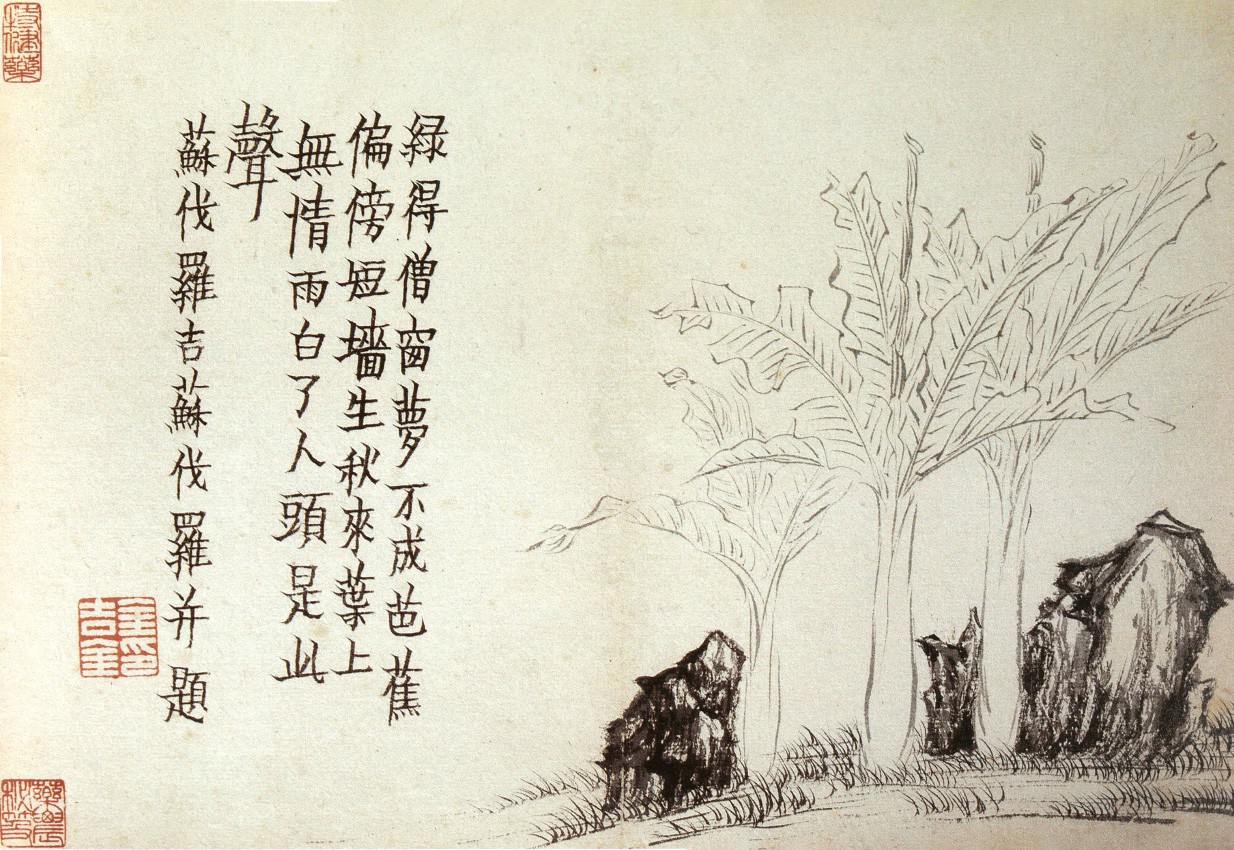 緑得僧窗夢不成芭蕉
偏傍短墻生秋來葉上
無情雨白了人頭是此
聲
蘇伐羅吉蘇伐羅并題
金吉金印